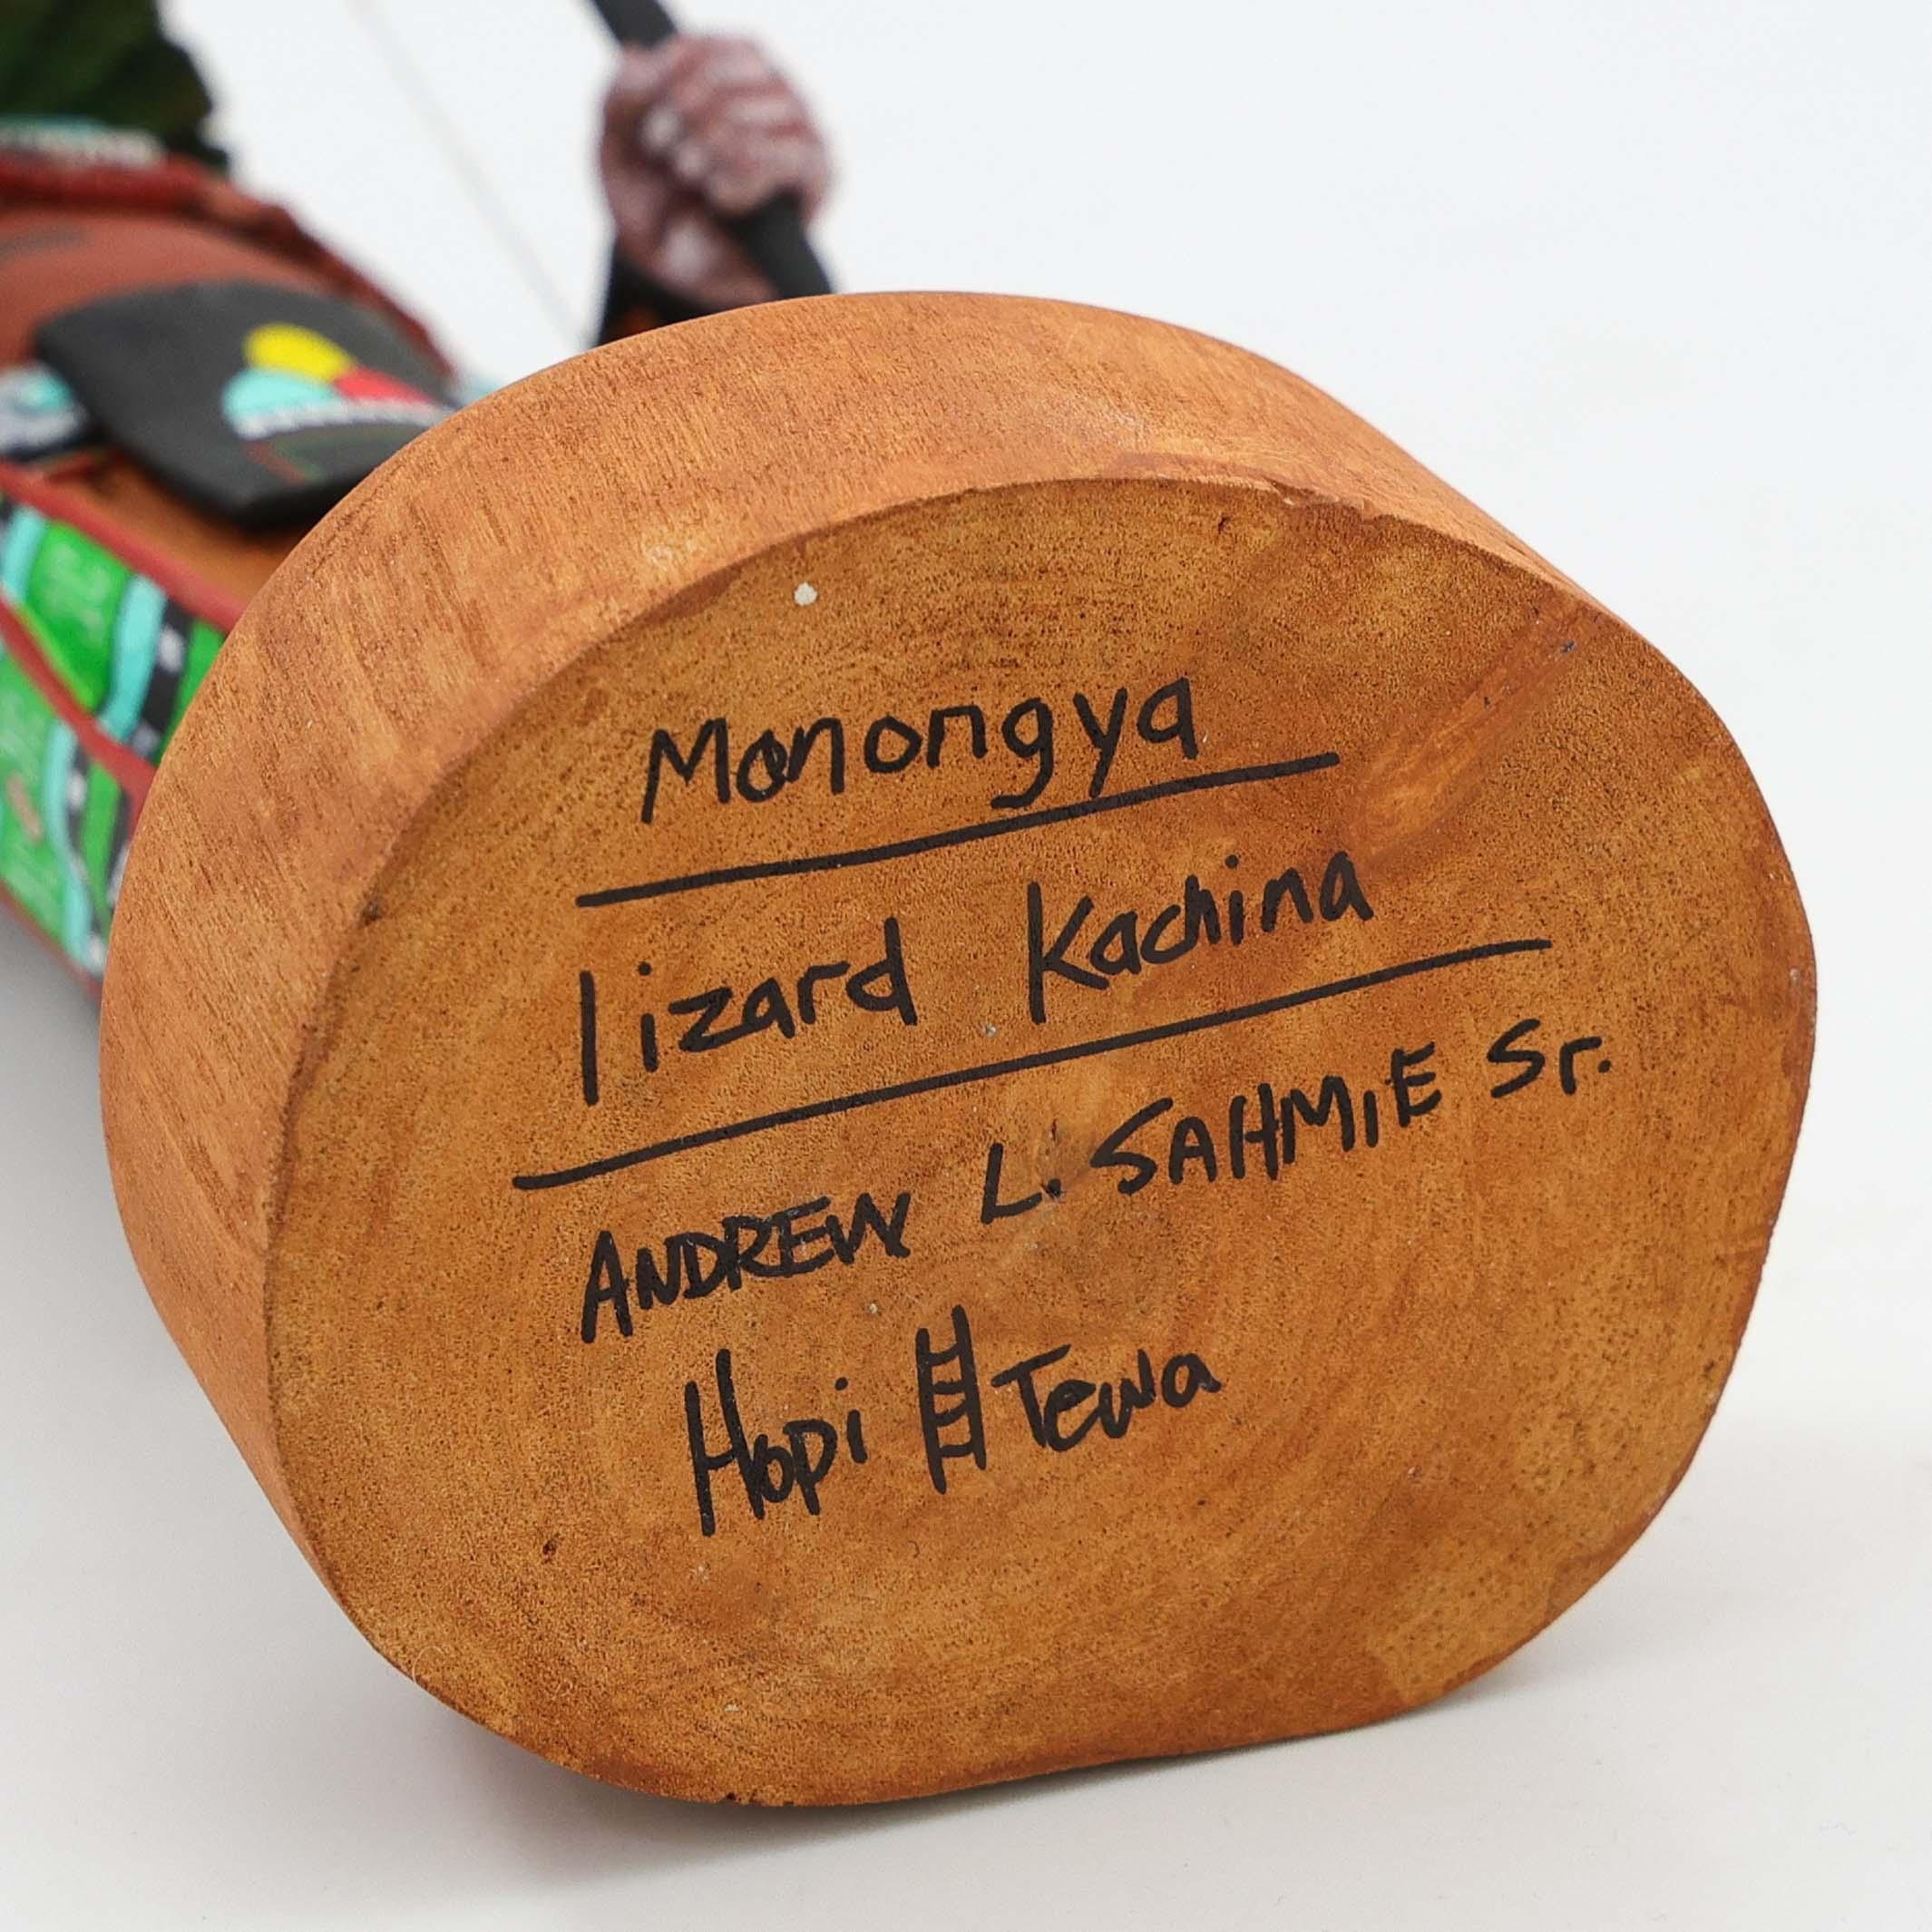 Monongya
lizard Kachina
ANDREW L. SAHMiE Sr.
Hopi Tewa